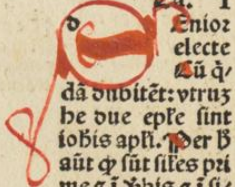 Enior
electe
Cũ q̃/
dã dubitẽt: vtruʒ
he due epłe ſint
iohis apłi. Per h̾
aũt ꝙ ſũt ſiłes pri